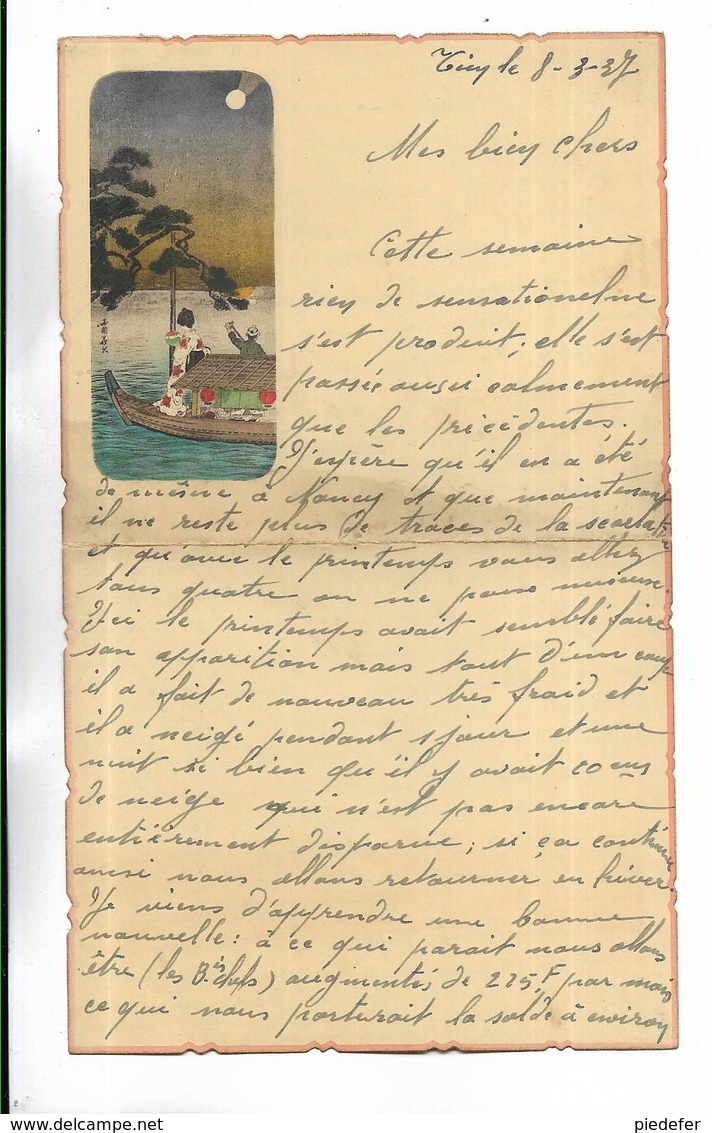 le 8-3-37
Mes bien chers
Cette semaine
rien de sensationel ne
s'est produit; elle s'est
passée aussi calmement
que les précédentes.
J'espère qu'il en a été
de même à Nancy et que maintenant
il ne reste plus de traces de la scarlatine
et qu'avec le printemps vous allez
tous quatre on ne peut mieux.
Ici le printemps avait semblé faire
son apparition mais tout d'un coup
il a fait de nouveau très froid et
il a neigé pendant 1 jour et une
nuit si bien qu'il y avait 20 cms
de neige qui n'est pas encore
entièrement disparue; si ça continue
ainsi nous allons retourner en hiver.
Je viens d'apprendre une bonne
nouvelle: à ce qui parait nous allons
être (les chefs) augmentés de 225F par mois
ce qui nous porterait la solde à environ
piedefer